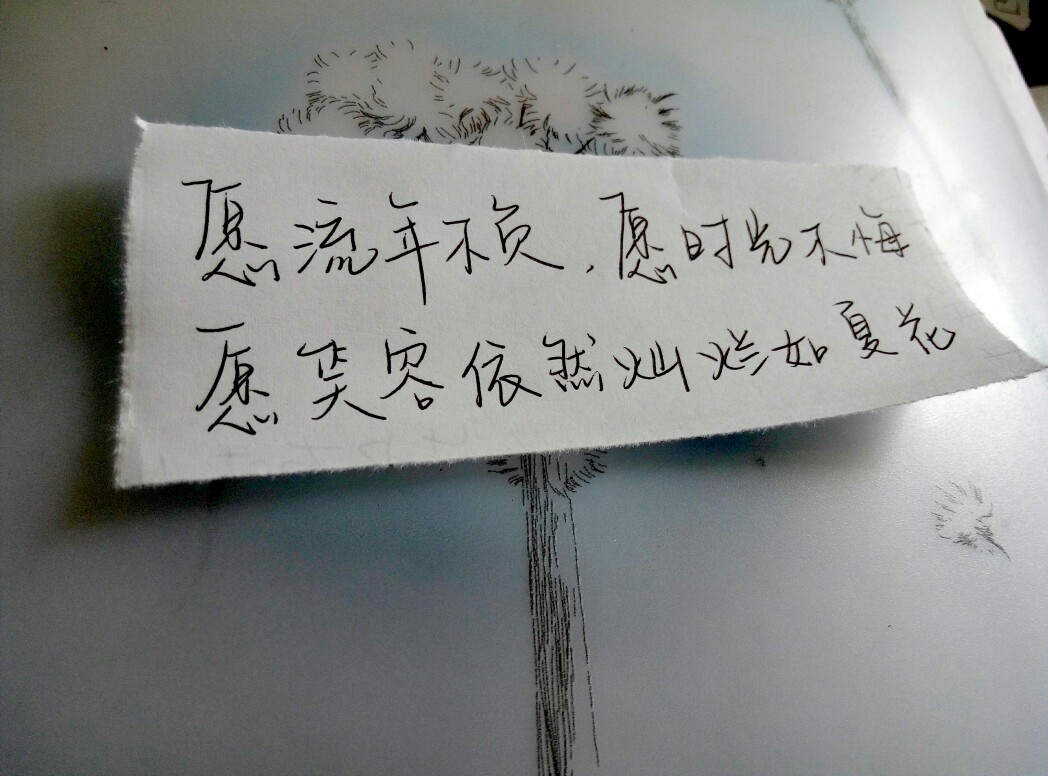 愿流年不负，愿时光不悔
愿笑容依然灿烂如夏花